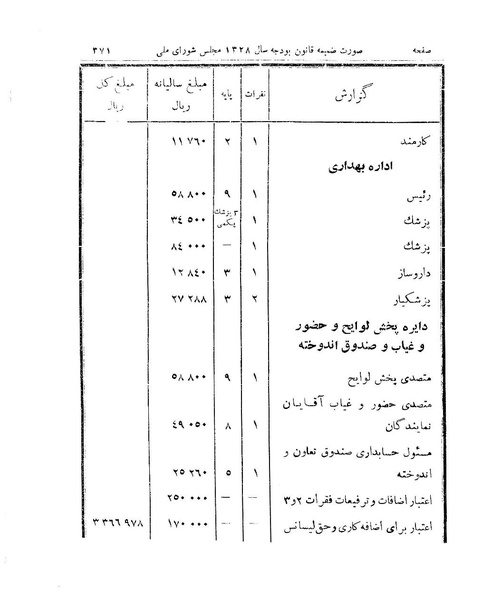 صفحه صورت ضمیمه قانون بودجه سال ۱۳۲۸ مجلس شورای ملی ۳۷۱
گزارش نفرات پایه مبلغ سالیانه ریال مبلغ کل ریال
کارمند ۱ ۲ ۱۱ ۷۶۰
اداره بهداری
رئیس ۱ ۹ ۵۸ ۸۰۰
پزشك ۱ ۳ پزشك یکمی ۳٤ ۵۰۰
پزشك ۱ — ۸٤ ۰۰۰
داروساز ۱ ۳ ۱۲ ۸٤۰
پزشکیار ۲ ۳ ۲۷ ۲۸۸
دایره پخش لوایح و حضور
و غیاب و صندوق اندوخته
متصدی پخش لوایح ۱ ۹ ۵۸ ۸۰۰
متصدی حضور و غیاب آقایان
نمایندگان ۱ ۸ ٤۹ ۰۵۰
مسئول حسابداری صندوق تعاون و
اندوخته ۱ ۵ ۲۵ ۲۶۰
اعتبار اضافات و ترفیعات فقرات ۲و۳ — — ۲۵۰ ۰۰۰
اعتبار برای اضافه کاری وحق لیسانس — — ۱۷۰ ۰۰۰ ۳ ۳۶۶ ۹۷۸